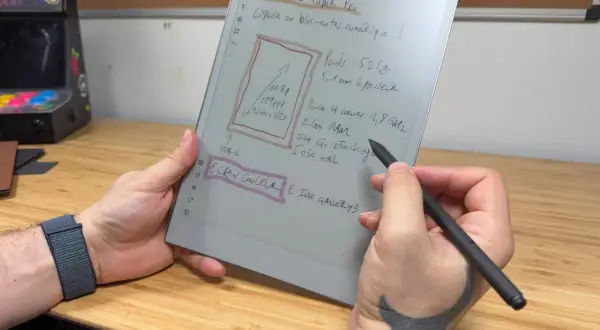 Paper Pro
Liseuse ou bloc-notes numérique ?
Poids : 525g
5,1 mm épaisseur
11.8p
229 PPP
Puce 4 coeurs 1,8 GHz
2 Go RAM
64 Go stockage
5030 mAh
USB-C
ECRAN COULEUR
E INK GALLERY 3